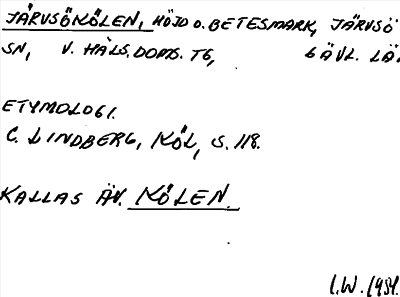 JÄRVSÖKÖLEN, HÖJD O. BETESMARK, JÄRVSÖ
SN, V. HÄLS. DOMS. TG, GÄVL. LÄ
ETYMOLOGI.
C. LINDBERG, KÖL, S. 118.
KALLAS ÄV. KÖLEN.
I.W. 1984.